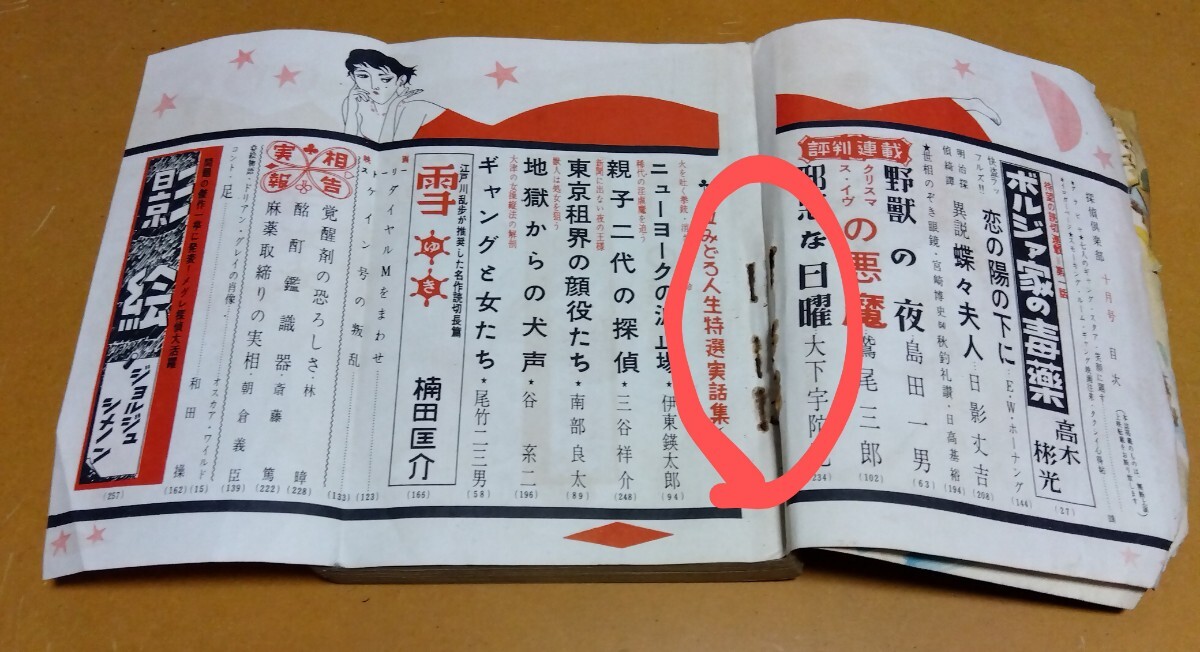 探偵倶楽部 十月号 目次
ボルジァ家の毒藥 高木彬光 (27)
快盗アフルズ!! 恋の陽の下に E・W・ホーナング (144)
明治探偵綺譚 異説蝶々夫人 日影丈吉 (208)
★世相のぞき眼鏡・宮崎博史 (194)
評判連載
野獣の夜 島田一男 (63)
クリスマス・イヴの悪魔 鷲尾三郎 (102)
な日曜 大下宇陀 (234)
みどろ人生特選実話集
ニューヨークの波止場 ★ 伊東鍈太郎 (94)
稀代の淫虐魔を追う
親子二代の探偵 ★ 三谷祥介 (248)
新聞に出ない夜の王様
東京租界の顔役たち ★ 南部良太 (89)
獣人は処女を狙う
地獄からの犬声 ★ 谷糸二 (196)
ギャングと女たち ★ 尾竹二三男 (58)
江戸川乱歩が推奨した名作読切長篇
雪 ゆき 楠田匡介 (166)
ダイヤルMをまわせ (123)
ケイン号の叛乱 (133)
実相報告
覚醒剤の恐ろしさ・林暲 (228)
酩酊鑑識器・斎藤篤 (222)
麻薬取締りの実相・朝倉義臣 (139)
◎絵物語・ドリアン・グレイの肖像 オスカア・ワイルド (15)
コント・足 和田操 (162)
問題の傑作一挙に発表!メグレ探偵大活躍
ジョルジュ・シメノン (257)